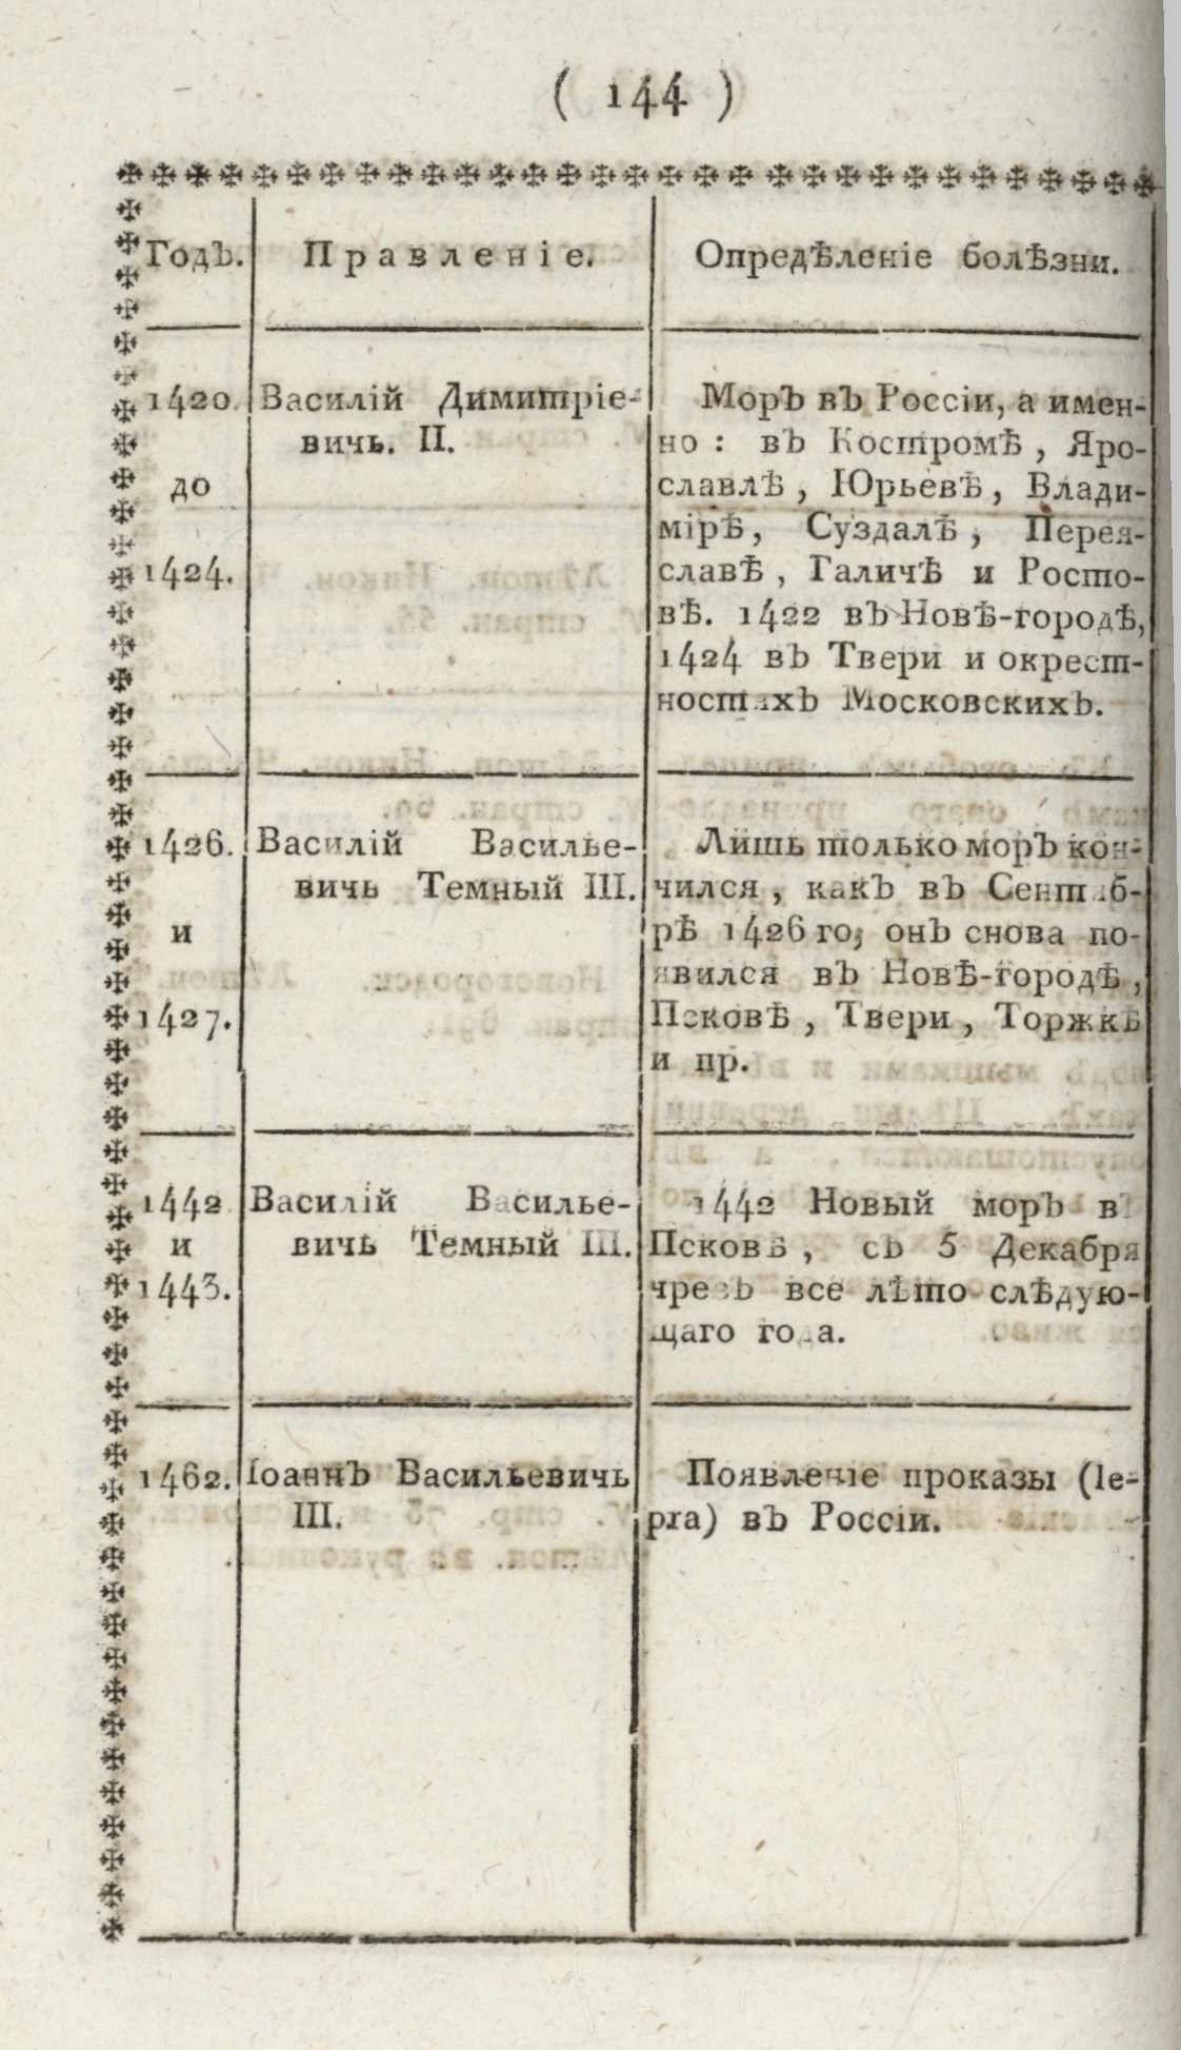 ( 144 )
Годъ.
Правленіе.
Опредѣленіе болѣзни.
1420
до
1424.
Василій Димитріе-
вичь. II.
Моръ въ Россіи, а имен-
но : въ Костромѣ , Яро-
славлѣ , Юрьевѣ , Влади-
мірѣ, Суздалѣ , Перея-
славѣ , Галичѣ и Росто-
вѣ. 1422 въ Новѣ-городѣ,
1424 въ Твери и окрест-
ностяхъ Московскихъ.
1426.
и
1427.
Василій Василье-
вичь Темный III.
Лишь только моръ кон-
чился , какъ въ Сентяб-
рѣ 1426 го, онъ снова по-
явился въ Новѣ-городѣ ,
Псковѣ , Твери , Торжкѣ
и пр.
1442
и
1443.
Василій Василье-
вичь Темный III.
1442 Новый моръ въ
Псковѣ , съ 5 Декабря
чрезъ все лѣто слѣдую-
щаго года.
1462.
Іоаннъ Васильевичь
III.
Появленіе проказы (le-
pra) въ Россіи.